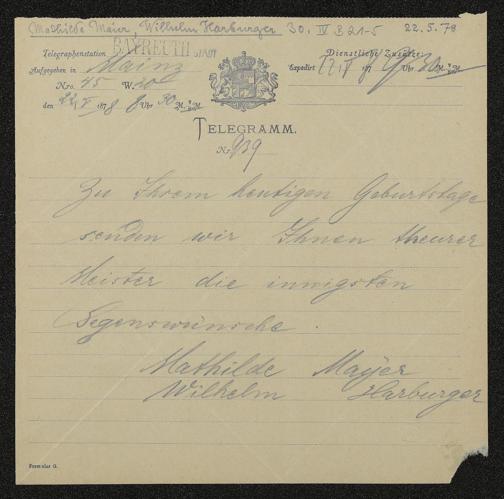 Mathilde Maier, Wilhelm Harburger 30. IV B 21-5 22.5.78
Telegraphenstation BAYREUTH STADT
Dienstliche Zusätze:
Aufgegeben in Mainz
Expedirt 22/V 187 8 Uhr 30 M.
Nro. 45 W. 20
den 22/V 1878 8 Uhr 30 M.
TELEGRAMM.
Nr. 939
Zu Ihrem heutigen Geburtstage
senden wir Ihnen theurer
Meister die innigsten
Segenswünsche.
Mathilde Mayer
Wilhelm Harburger
Formular G.